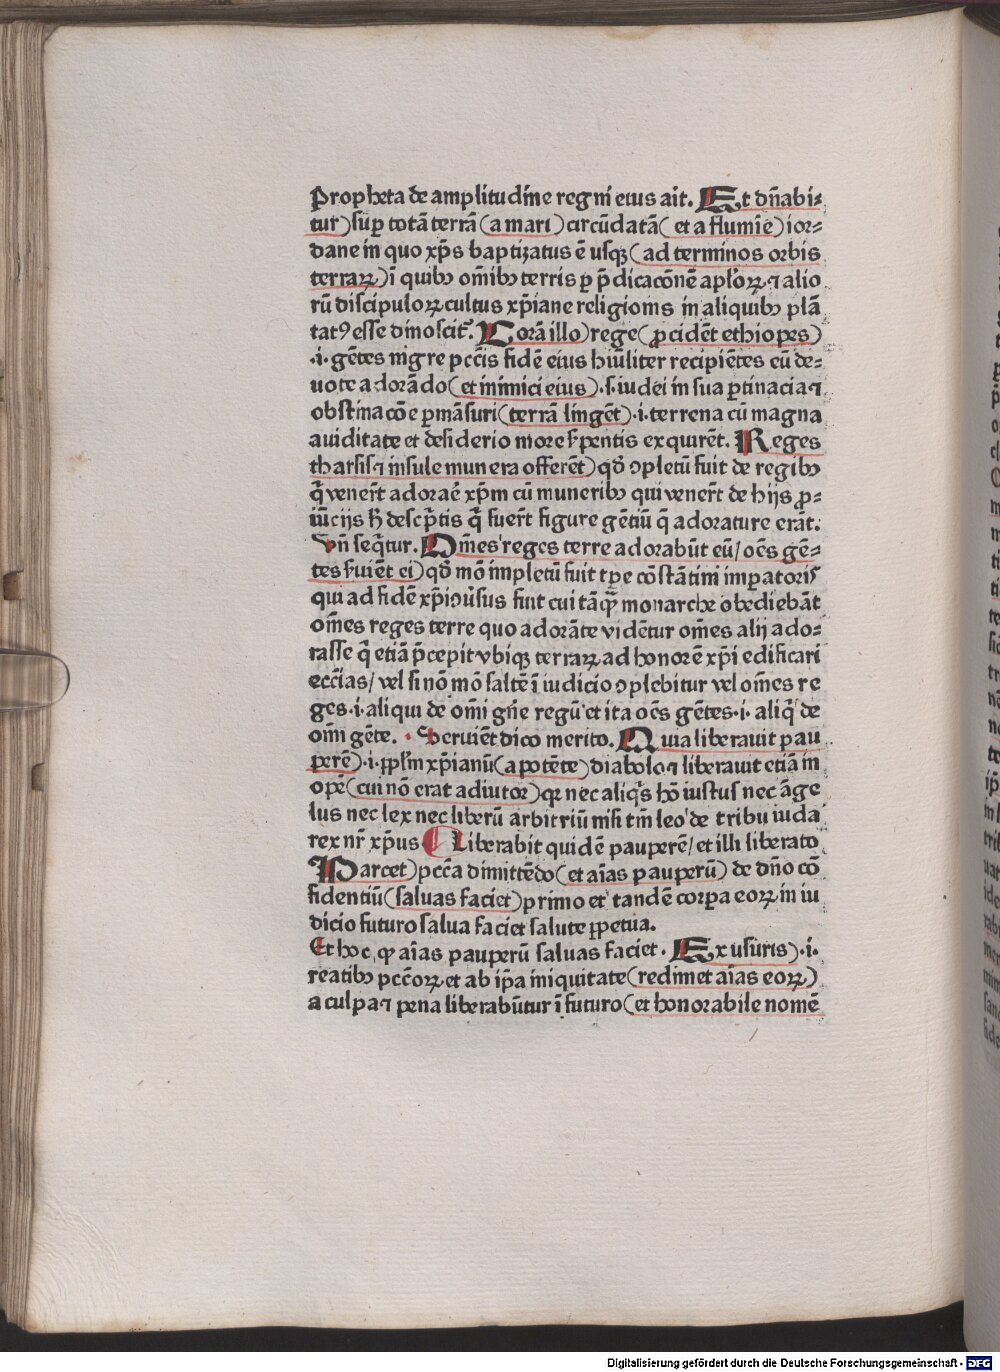 Propheta de amplitudine regni eius ait. Et dn̄abi⸗
tur) sup̱ totā terrā (a mari) circūdatā (et a flumīe) ior⸗
dane in quo xp̄s baptizatus ē usqꝫ (ad terminos orbis
terraꝝ) ī quibꝰ om̄ibꝰ terris ꝑ p̄dicacōnē apl'oꝝ ⁊ alio
rū discipuloꝝ cultus xp̄iane religionis in aliquibꝰ plā
tatꝰ esse dinoscit᷑. Corā illo) rege (ꝓcidēt ethiopes)
.i. gētes nigre pcc̄is fidē eius hūiliter recipiētes eū de⸗
uote adorādo (et inimici eius) .s. iudei in sua ꝑtinacia ⁊
obstinacōe ꝑmāsuri (terrā lingēt) .i. terrena cū magna
auiditate et desiderio more s̄pentis exquirēt. Reges
tharsis ⁊ insule munera offerēt) qd̄ ↄpletū fuit de regibꝰ
q̄ vener̄t adorae᷑ xp̄m cū muneribꝰ qui vener̄t de hijs ꝓ⸗
iūcijs h̄ descp̄tis q̄ fuer̄t figure gētiū q̄ adorature erāt.
Vn̄ seq̄tur. Om̄es reges terre adorabūt eū / oēs gē⸗
tes s̄uiēt ei) qd̄ mō impletū fuit tꝑe cōstātini imꝑatoris
qui ad fidē xp̄i ↄūsus fuit cui tāq̄ꝫ monarche obediebāt
om̄es reges terre quo adorāte vidētur om̄es alij ado⸗
rasse q̄ etiā p̄cepit vbiqꝫ terraꝝ ad honorē xp̄i edificari
ecc̄ias / vel si nō mō saltē ī iudicio ↄplebitur vel om̄es re
ges .i. aliqui de om̄i gn̄e regū et ita oēs gētes .i. aliq̄ de
om̄i gēte. Seruiēt dico merito. Quia liberauit pau
perē) .i. ppl̄m xp̄ianū (a potēte) diabolo ⁊ liberauit etiā in
opē (cui nō erat adiutor) qꝛ nec aliq̄s hō iustus nec āge
lus nec lex nec liberū arbitriū nisi tm̄ leo de tribu iuda
rex nr̄ xp̄us Liberabit quidē pauperē / et illi liberato
Parcet) pcc̄a dimittēdo (et aīas pauperū) de dn̄o cō
fidentiū (saluas faciet) primo et tandē corꝑa eoꝝ in iu
dicio futuro salua faciet salute ꝑpetua.
Et hoc, ꝙ aīas pauperū saluas faciet. Ex usuris) .i.
reatibꝰ pcc̄oꝝ et ab ip̄a iniquitate (redimet aīas eoꝝ)
a culpa ⁊ pena liberabūtur ī futuro (et honorabile nomē
Digitalisierung gefördert durch die Deutsche Forschungsgemeinschaft - DFG